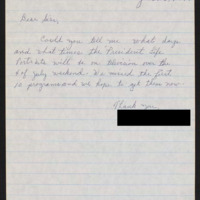 Dear Sirs,
Could you tell me what days
and what times the President Life
Portraits will be on television over the
of July weekend. We missed the first
10 programs and we hope to get these now.
Thank you,